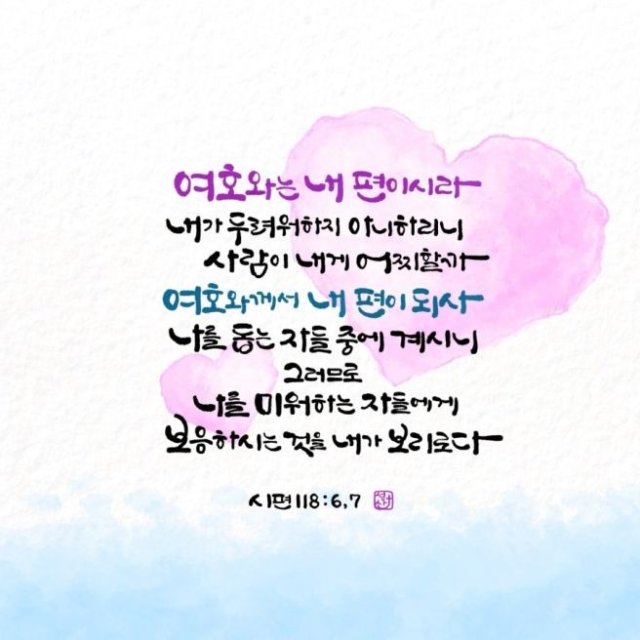 여호와는 내 편이시라
내가 두려워하지 아니하리니
사람이 내게 어찌할까
여호와께서 내 편이 되사
나를 돕는 자들 중에 계시니
그러므로
나를 미워하는 자들에게
보응하시는 것을 내가 보리로다
시편 118:6,7